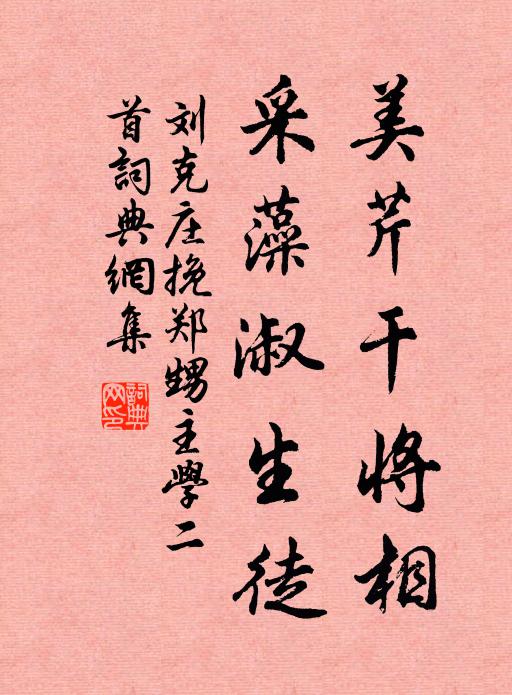 美芹干将相
采藻淑生徒
刘克庄挽郑甥主学二
首词典网集
詞典網印